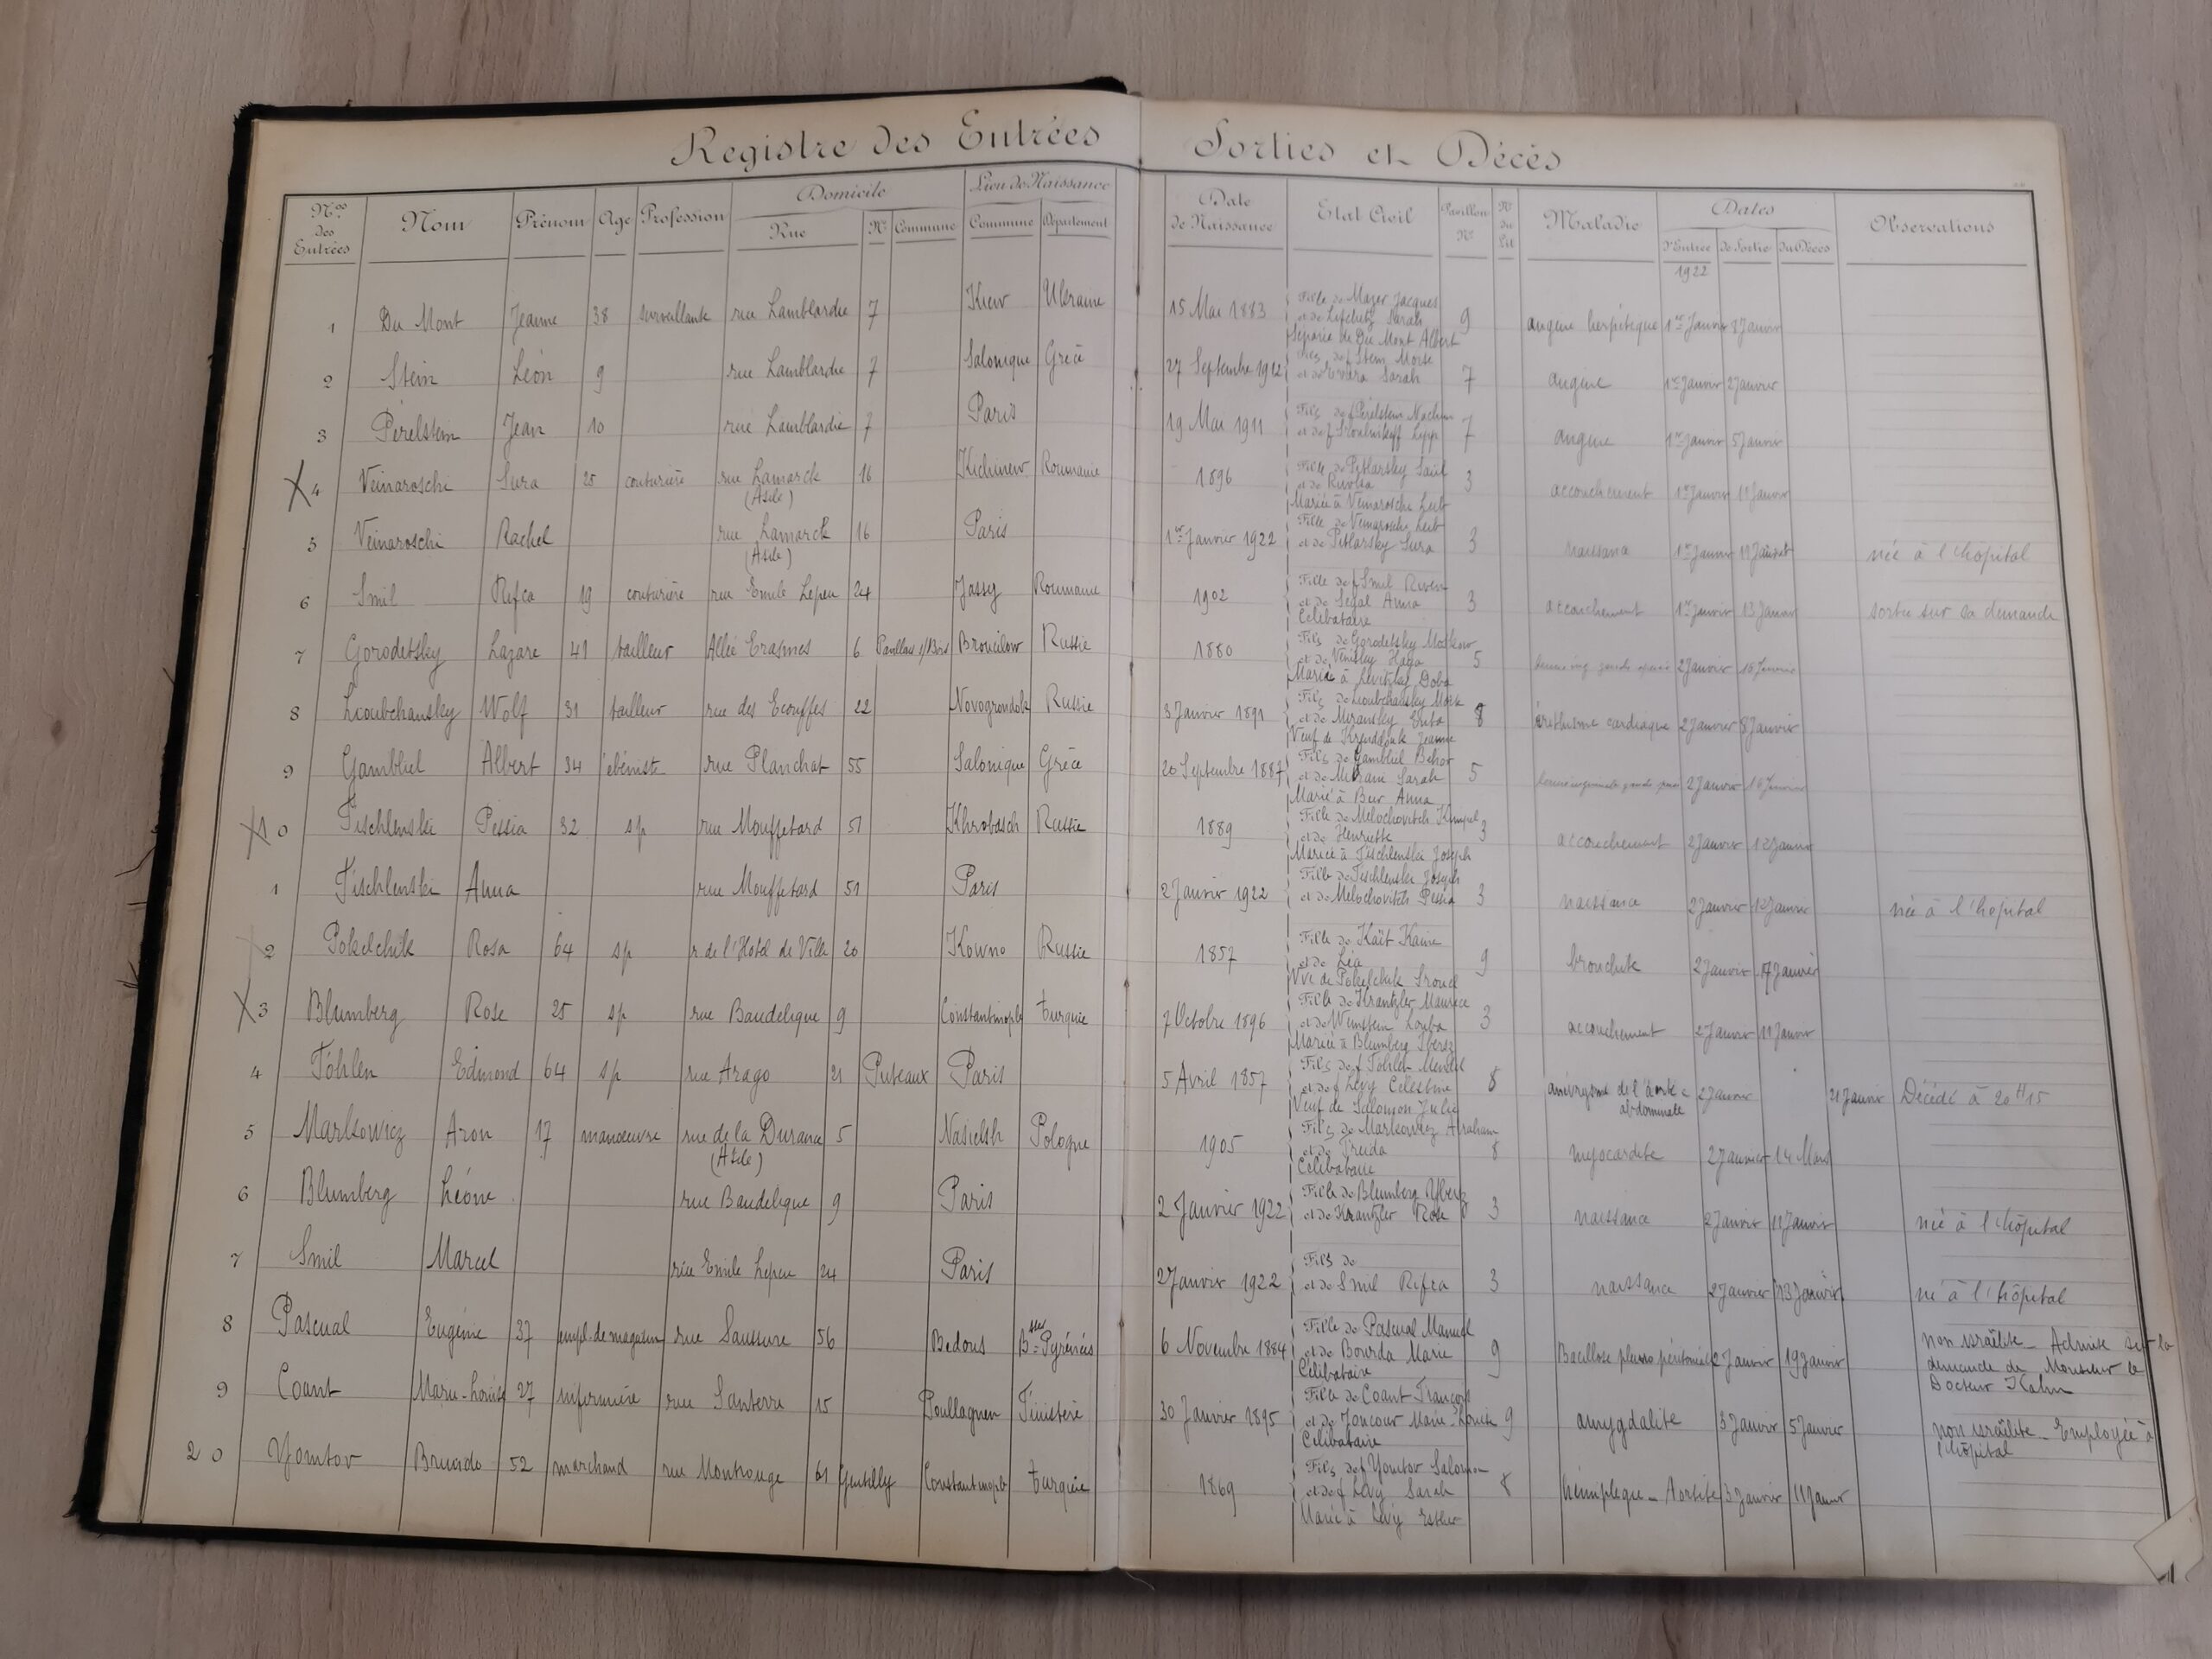 Registre des Entrées Sorties et Décès
Nos des Entrées Nom Prénom Age Profession Domicile Rue No Commune Lieu de Naissance Commune Département Date de Naissance Etat Civil Pavillon No No du Lit Maladie Dates d'Entrée de Sortie du Décès Observations
1922
1 Du Mont Jeanne 38 surveillante rue Lamblardie 7 Kiew Ukraine 15 Mai 1883 Fille de Mazer Jacques 9 angine herpétique 1er Janvier 2 Janvier
et de Lifchitz Sarah
Séparée de Du Mont Albert
2 Stein Léon 9 rue Lamblardie 7 Salonique Grèce 27 Septembre 1912 fils de f Stein Moïse 7 angine 1er Janvier 2 Janvier
et de Sarah
3 Pérelstein Jean 10 rue Lamblardie 7 Paris 19 Mai 1911 Fils de f Pérelstein Nachum 7 angine 1er Janvier 5 Janvier
et de f
4 Veinaroschi Sura 25 couturière rue Lamarck 16 Kichinew Roumanie 1896 Fille de Petlarsky Saül 3 accouchement 1er Janvier 11 Janvier
(Asile) et de Rivska
Mariée à Veinaroschi Leib
5 Veinaroschi Rachel rue Lamarck 16 Paris 1er Janvier 1922 Fille de Veinaroschi Leib 3 naissance 1er Janvier 11 Janvier née à l'hôpital
(Asile) et de Petlarsky Sura
6 Smil Rifca 19 couturière rue Emile Lepeu 24 Jassy Roumanie 1902 Fille de f Smil Riven 3 accouchement 1er Janvier 13 Janvier sortie sur sa demande
et de Segal Anna
Célibataire
7 Gorodetsky Lazare 41 tailleur Allée Erasmes 6 Pavillons s/Bois Broucilow Russie 1880 Fils de Gorodetsky Moïse 5 2 Janvier 16 Janvier
et de Haya
Marié à Levitzkaï Doba
8 Lioubchansky Wolf 31 tailleur rue des Ecouffes 22 Novogrondok Russie 3 Janvier 1891 Fils de Lioubchansky 8 éréthisme cardiaque 2 Janvier 8 Janvier
et de Miransky
Veuf de Jeanne
9 Gambliel Albert 34 ébéniste rue Planchat 55 Salonique Grèce 20 Septembre 1887 Fils de Gambliel Behor 5 2 Janvier 16 Janvier
et de Mitrani Sarah
Marié à Beur Anna
10 Fischlenski Pessia 32 sp rue Mouffetard 51 Khrobasch Russie 1889 Fille de Melochovitch 3 accouchement 2 Janvier 12 Janvier
et de Henriette
Mariée à Fischlenski Joseph
1 Fischlenski Anna rue Mouffetard 51 Paris 2 Janvier 1922 Fille de Fischlenski Joseph 3 naissance 2 Janvier 12 Janvier née à l'hôpital
et de Melochovitch Pessia
2 Pokelchik Rosa 64 sp r de l'Hotel de Ville 20 Kowno Russie 1857 Fille de Kaït Kaïne 9 bronchite 2 Janvier 17 Janvier
et de Léa
Vve de Pokelchik Srouel
3 Blumberg Rose 25 sp rue Baudelique 9 Constantinople turquie 7 Octobre 1896 Fille de Krantzler Maurice 3 accouchement 2 Janvier 11 Janvier
et de Weinstein Louba
Mariée à Blumberg
4 Töhlen Edmond 64 sp rue Arago 21 Puteaux Paris 5 Avril 1857 Fils de f Töhlen Mendel 8 anévrysme de l'aorte abdominale 2 Janvier 21 Janvier Décédé à 20H15
et de f Lévy Célestine
Veuf de Salomon Julie
5 Markowicz Aron 17 manoeuvre rue de la Durance 5 Nasielsk Pologne 1905 Fils de Markowicz Abraham 8 myocardite 2 Janvier 14 Mars
(Asile) et de Freida
Célibataire
6 Blumberg Léone rue Baudelique 9 Paris 2 Janvier 1922 Fille de Blumberg 3 naissance 2 Janvier 11 Janvier née à l'hôpital
et de Krantzler Rose
7 Smil Marcel rue Emile Lepeu 24 Paris 2 Janvier 1922 Fils de 3 naissance 2 Janvier 13 Janvier né à l'hôpital
et de Smil Rifca
8 Pascual Eugénie 37 empl. de magasin rue Saussure 56 Bedous Bsses Pyrénées 6 Novembre 1884 Fille de Pascual Manuel 9 Bacillose pleuro péritonéale 2 Janvier 19 Janvier non israëlite - Admise sur la
et de Bourda Marie demande de Monsieur le
Célibataire Docteur Kahn
9 Coant Marie-Louise 27 infirmière rue Santerre 15 Poullaouen Finistère 30 Janvier 1895 Fille de Coant François 9 amygdalite 3 Janvier 5 Janvier non israëlite - Employée à
et de Joncour Marie-Louise l'hôpital
Célibataire
20 Yomtov Bruado 52 marchand rue Montrouge 61 Gentilly Constantinople turquie 1869 Fils de f Yomtov Salomon 8 hémiplégie - Aortite 3 Janvier 11 Janvier
et de f Lévy Sarah
Marié à Lévy Esther